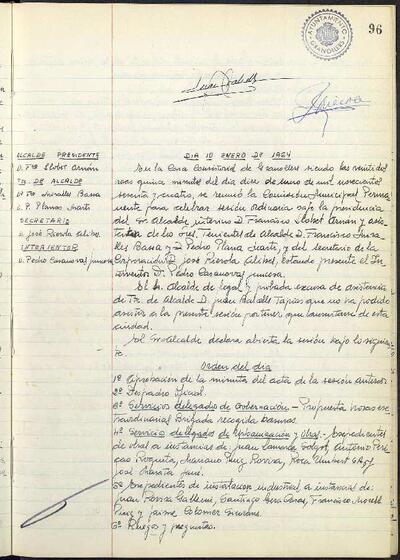 AYUNTAMIENTO
GRANOLLERS
96
ALCALDE PRESIDENTE
D. Fco Llobet Arnán
Tte. DE ALCALDE
D. P. Planas
SECRETARIO
D. José Rierola Alibes
INTERVENTOR
D. Pedro Casanovas
DIA 10 ENERO DE 1964
En la Casa Consistorial de Granollers siendo las veintidos
horas quince minutos del día diez de enero de mil novecientos
sesenta y cuatro, se reunió la Comisión Municipal Perma
nente para celebrar sesión ordinaria bajo la presidencia
del Sr. Alcalde interino D. Francisco Llobet Arnán y asis
tencia de los Sres. Tenientes de Alcalde D. Francisco
Bassa y D. Pedro Planas y del secretario de la
Corporación D. José Rierola Alibes, estando presente el In
terventor D. Pedro Casanovas
El Alcalde legal y probada excusa de asistencia
Tte. de Alcalde D. Juan Tapias que no ha podido
asistir a la presente sesión por tener que ausentarse de esta
ciudad.
Sr. Alcalde declara abierta la sesión bajo la siguien
te
Orden del día
1º Aprobación de la minuta del acta de la sesión anterior
2º Despacho Oficial.
3º Servicios delegados de Gobernación - Propuesta horas ex
traordinarias Brigada recogida basuras.
4º Servicio delegado de Urbanización y Obras. - Expedientes
de obras a instancias de Juan Antonio
Roqueta, Mariano Puig Rovira, Rosa Humbert
José
5º Expedientes de instalación industrial, a instancias de:
Juan Rovira Santiago Francisco
Puig y Jaime Colomer
6º Ruegos y preguntas.